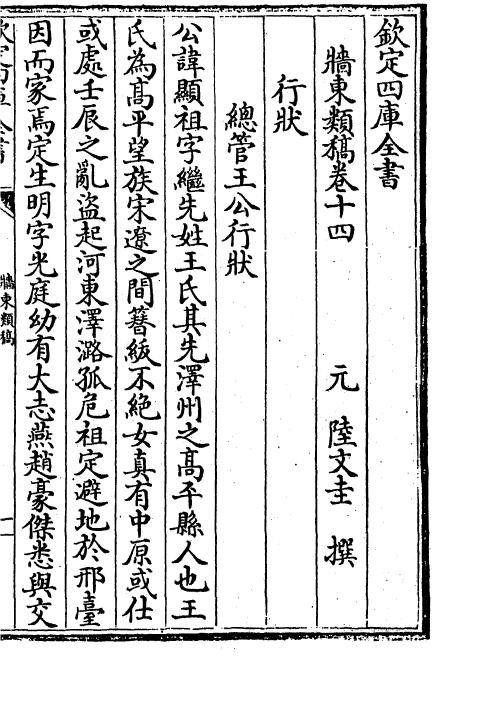 欽定四庫全書
牆東類稿卷十四　　元　陸文圭　撰
行狀
總管王公行狀
公諱顯祖字繼先姓王氏其先澤州之髙平縣人也王
氏為髙平望族宋遼之間簪紱不絶女真有中原或仕
或處壬辰之亂盜起河東澤潞孤危祖定避地於邢臺
因而家焉定生明字光庭幼有大志燕趙豪傑悉與交
牆東類稿
一